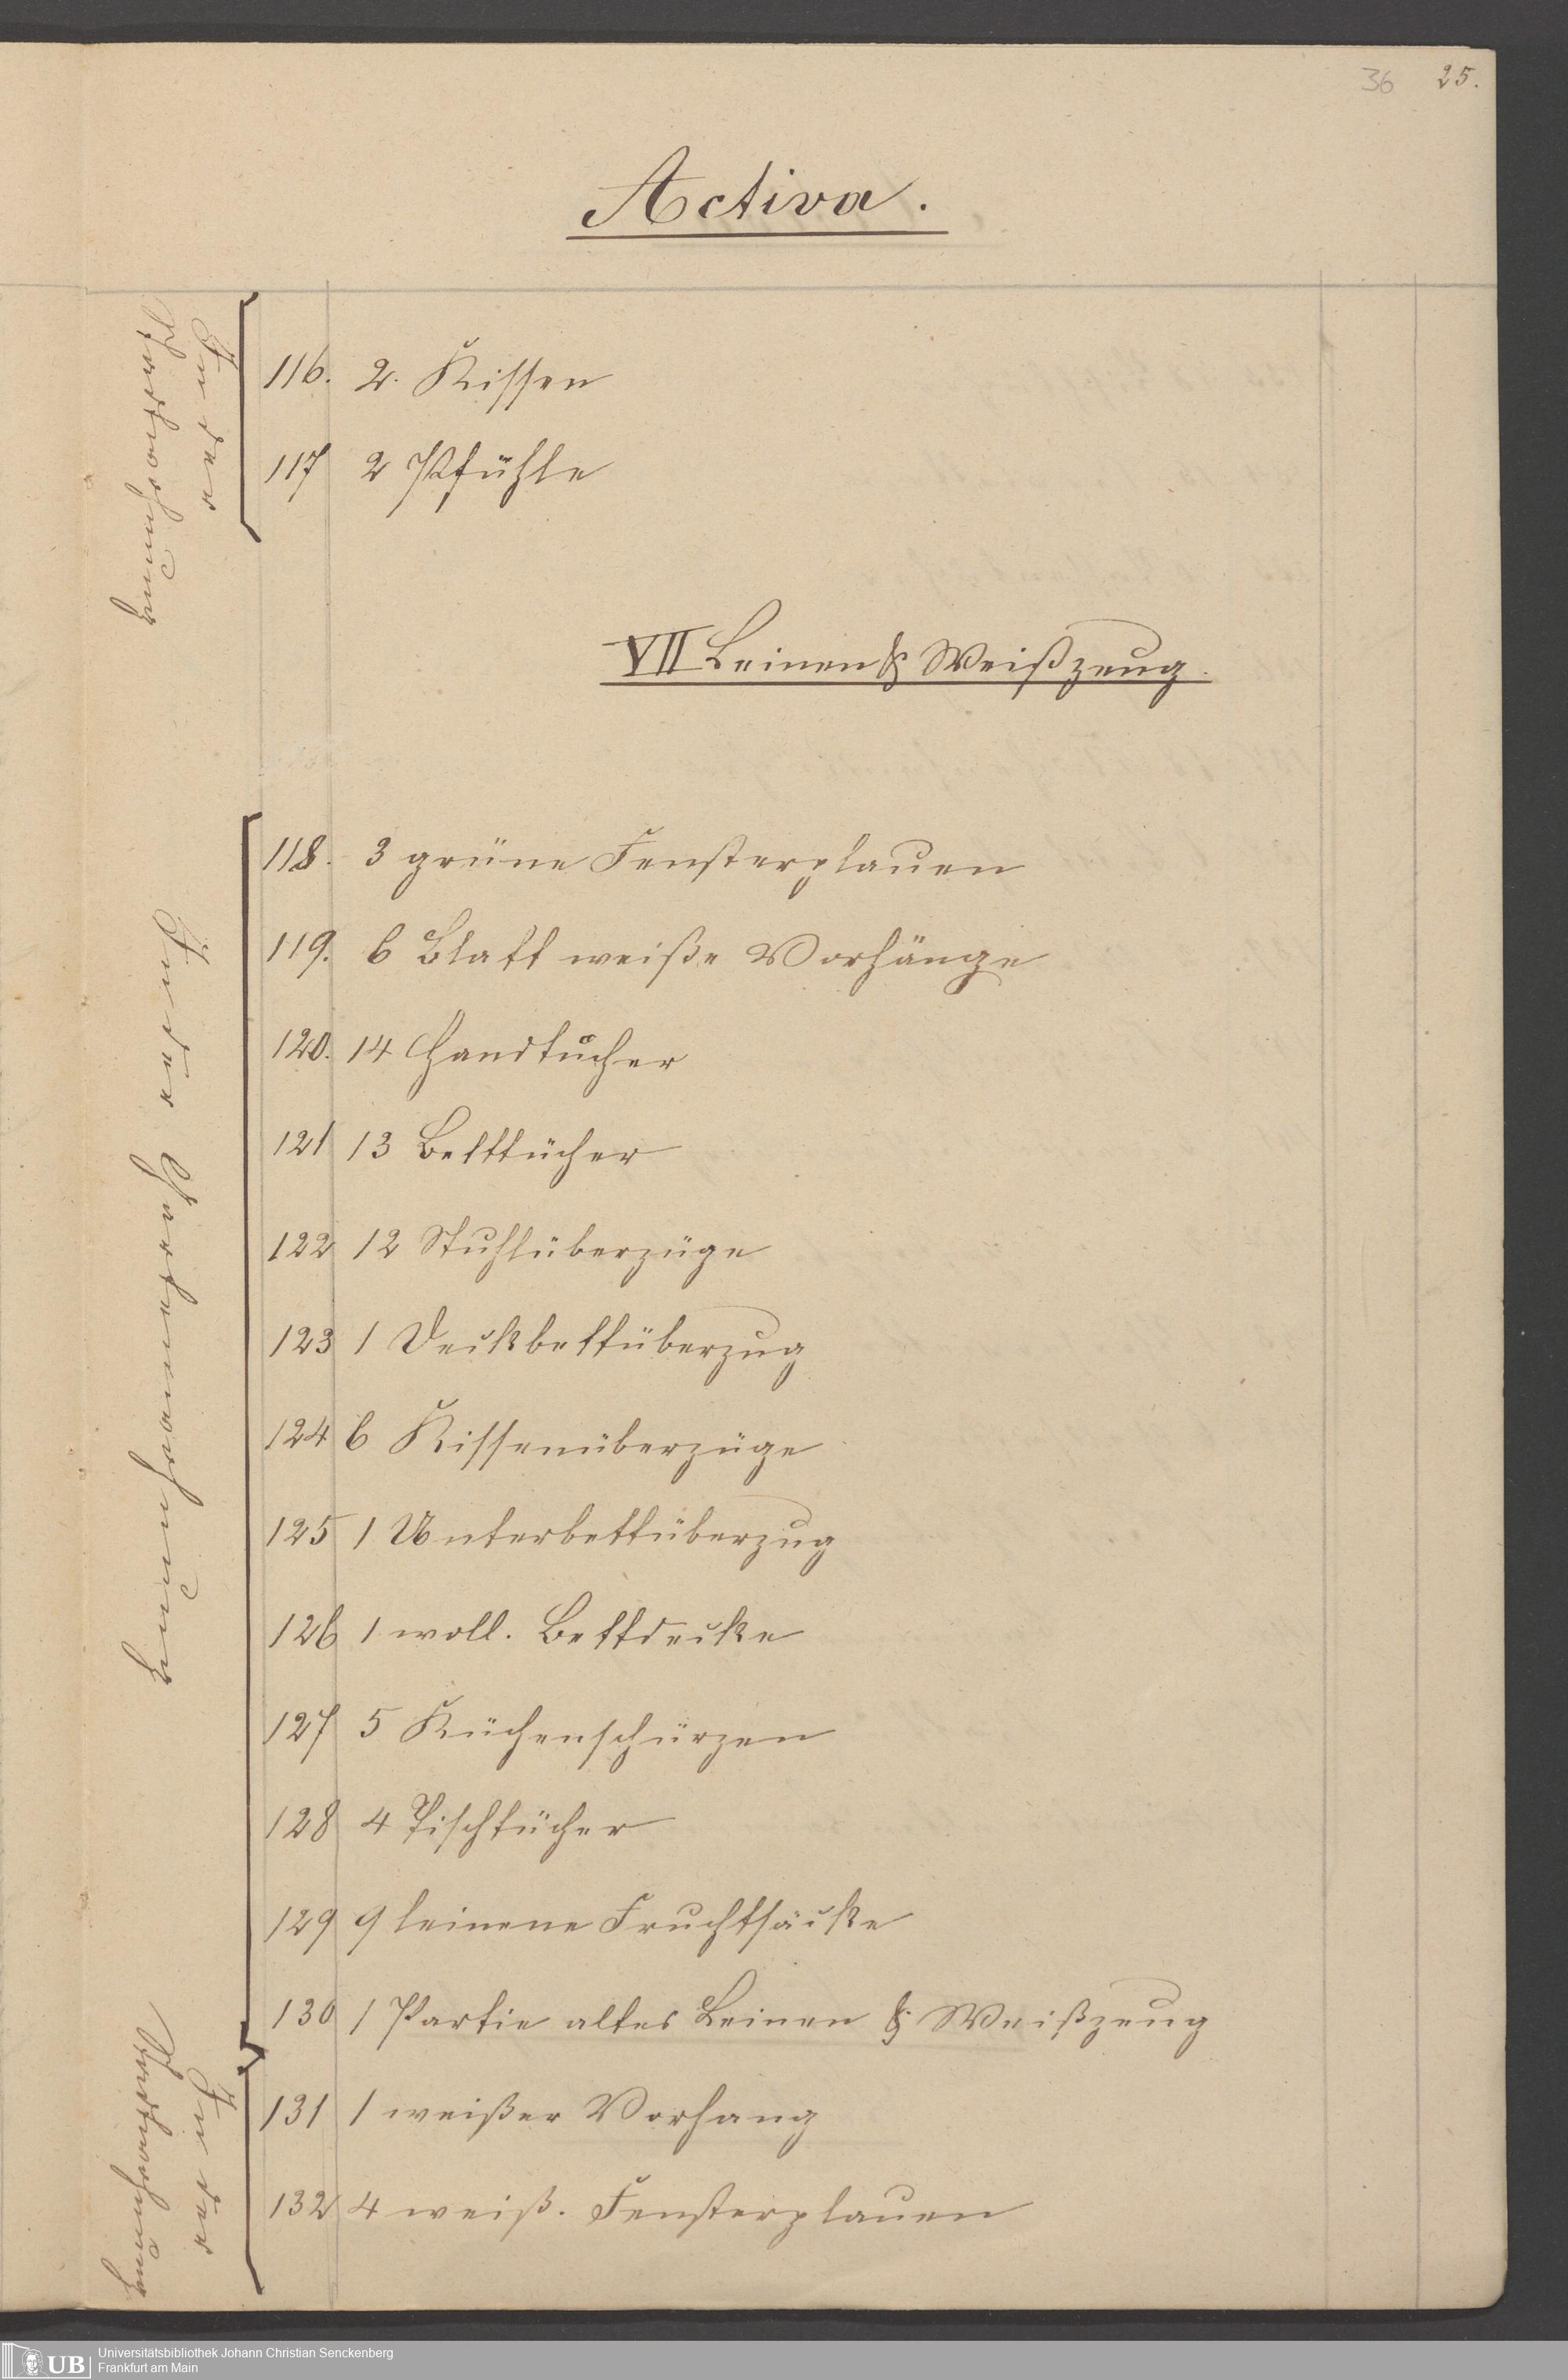 36 25.
Activa.
In der
116. 2. Kissen
117 2 Pfühle
VII Leinen & Weißzeug.
In der
118. 3 grüne Fensterplauen
119. 6 Blatt weiße Vorhänge
120. 14 Handtücher
121 13 Betttücher
122 12 Stuhlüberzüge
123 1 Deckbettüberzug
124 6 Kissenüberzüge
125 1 Unterbettüberzug
126 1 woll. Bettdecke
127 5 Küchenschürzen
128 4 Tischtücher
129 9 leinene Fruchtsäcke
130 1 Partie altes Leinen & Weißzeug
In der
131 1 weißer Vorhang
132 4 weiß. Fensterplauen
UB Universitätsbibliothek Johann Christian Senckenberg
Frankfurt am Main